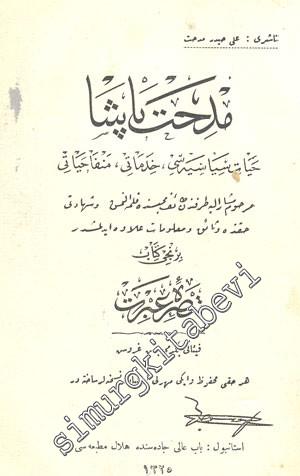 ناشری : علی حیدر مدحت
مدحت پاشا
حیات سیاسیه سی، خدماتی، منفا حیاتی
مرحوم مشار الیه طرفندن و شهادتی
حقنده وثائق و معلومات علاوه ایدلمشدر
برنجی کتاب
تبصرۀ عبرت
فیئاتی غروش
هر حقی محفوظ و ایکی مهرلی نسخه لر ساخته در
استانبول : باب عالی جاده سنده هلال مطبعه سی
١٣٢٥
simurgkitabevi